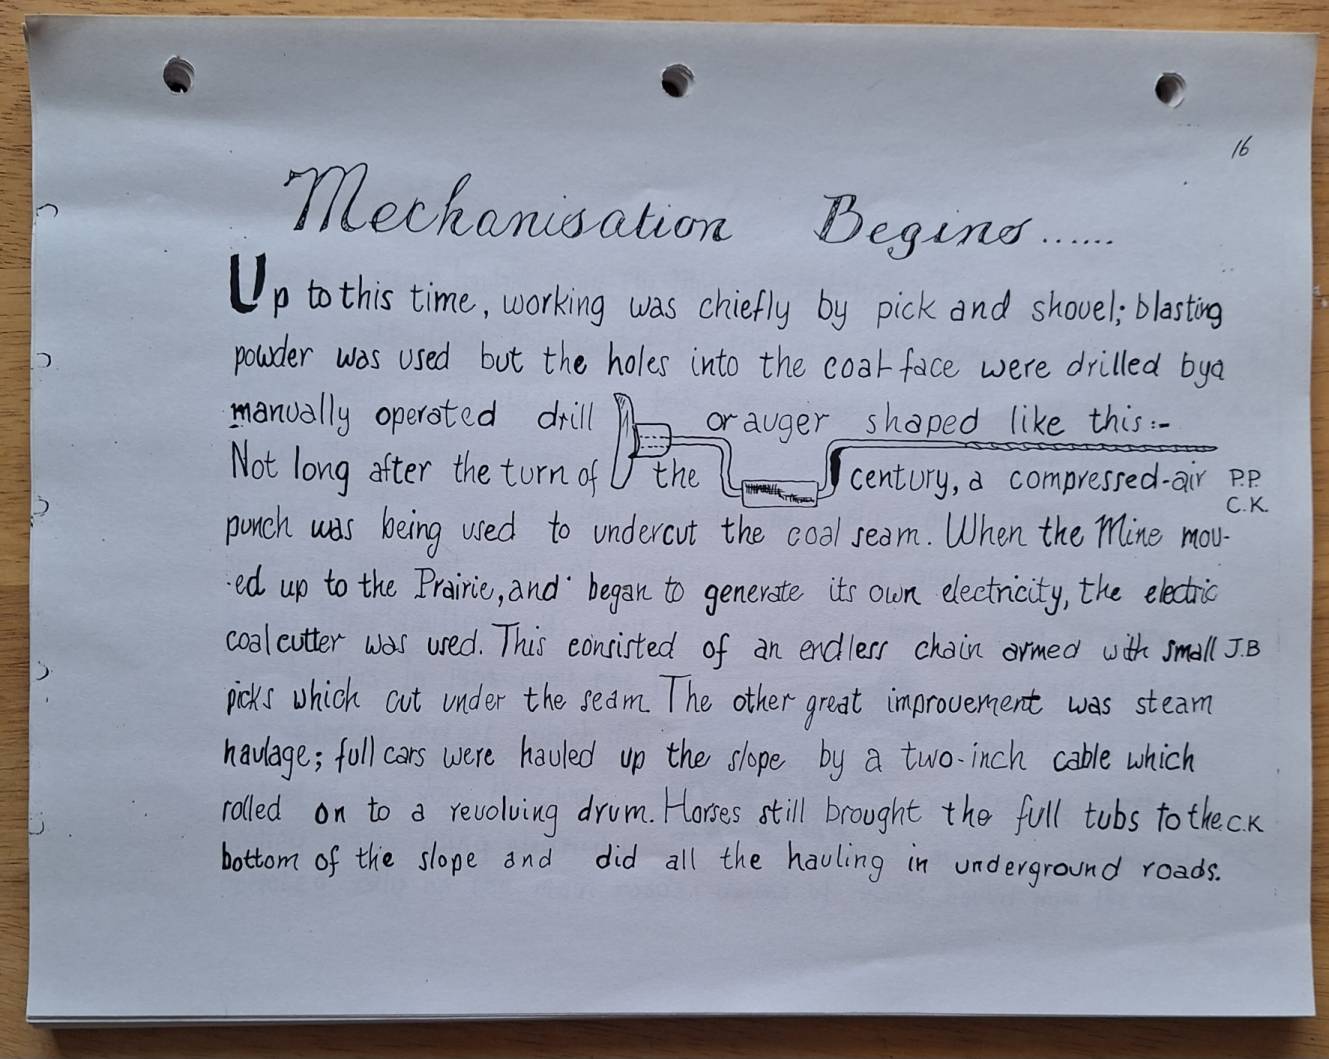 16
Mechanisation Begins......
Up to this time, working was chiefly by pick and shovel; blasting
powder was used but the holes into the coal-face were drilled by a
manually operated drill or auger shaped like this:-
Not long after the turn of the century, a compressed-air P.P.
C.K.
punch was being used to undercut the coal seam. When the Mine mov-
-ed up to the Prairie, and began to generate its own electricity, the electric
coalcutter was used. This consisted of an endless chain armed with small J.B
picks which cut under the seam. The other great improvement was steam
haulage; full cars were hauled up the slope by a two-inch cable which
rolled on to a revolving drum. Horses still brought the full tubs to the C.K
bottom of the slope and did all the hauling in underground roads.